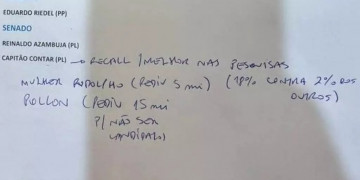 EDUARDO RIEDEL (PP)
SENADO
REINALDO AZAMBUJA (PL)
CAPITÃO CONTAR (PL) → RECALL / MELHOR NAS PESQUISAS
MULHER RODOLFHO (PEDIU 5 mi) (18% CONTRA 2% DOS OUTROS)
POLLON (PEDIU 15 mi
P/ NÃO SER
CANDIDATO)